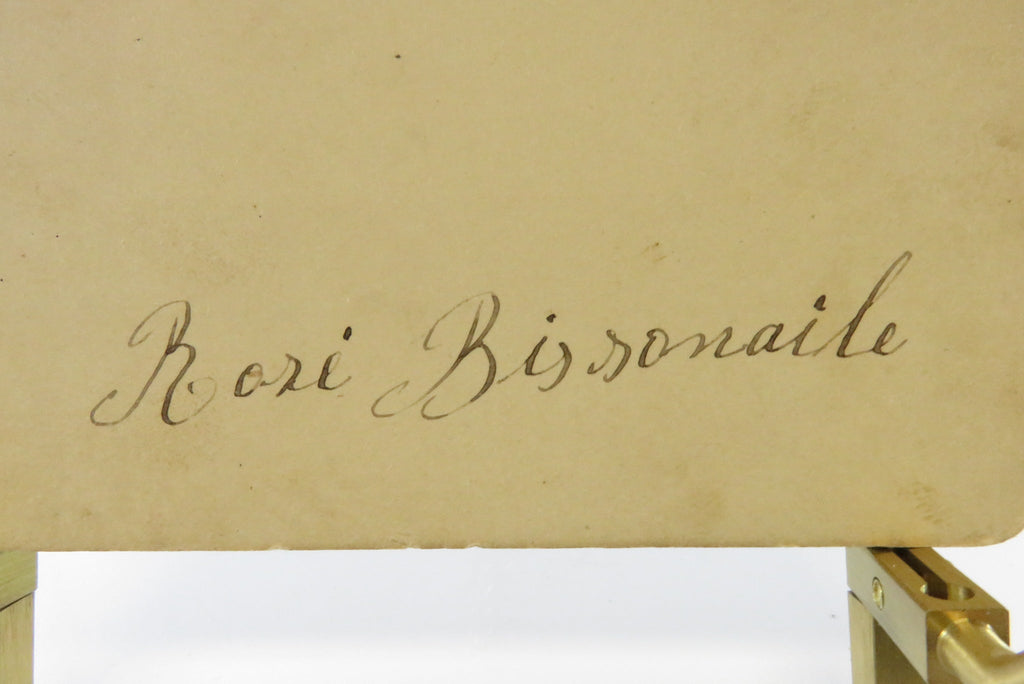 Rosé Bissonaile